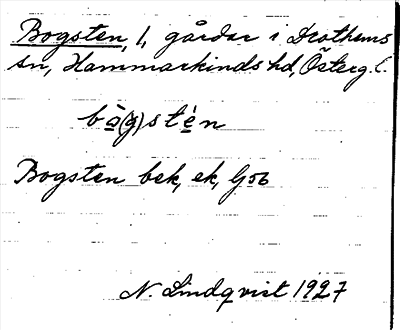 Bogsten, 1, gårdar i Drothems
sn, Hammarkinds hd, Österg. l.
bò(g)stén
Bogsten bek, ek, Gsb
N. Lindqvist 1927